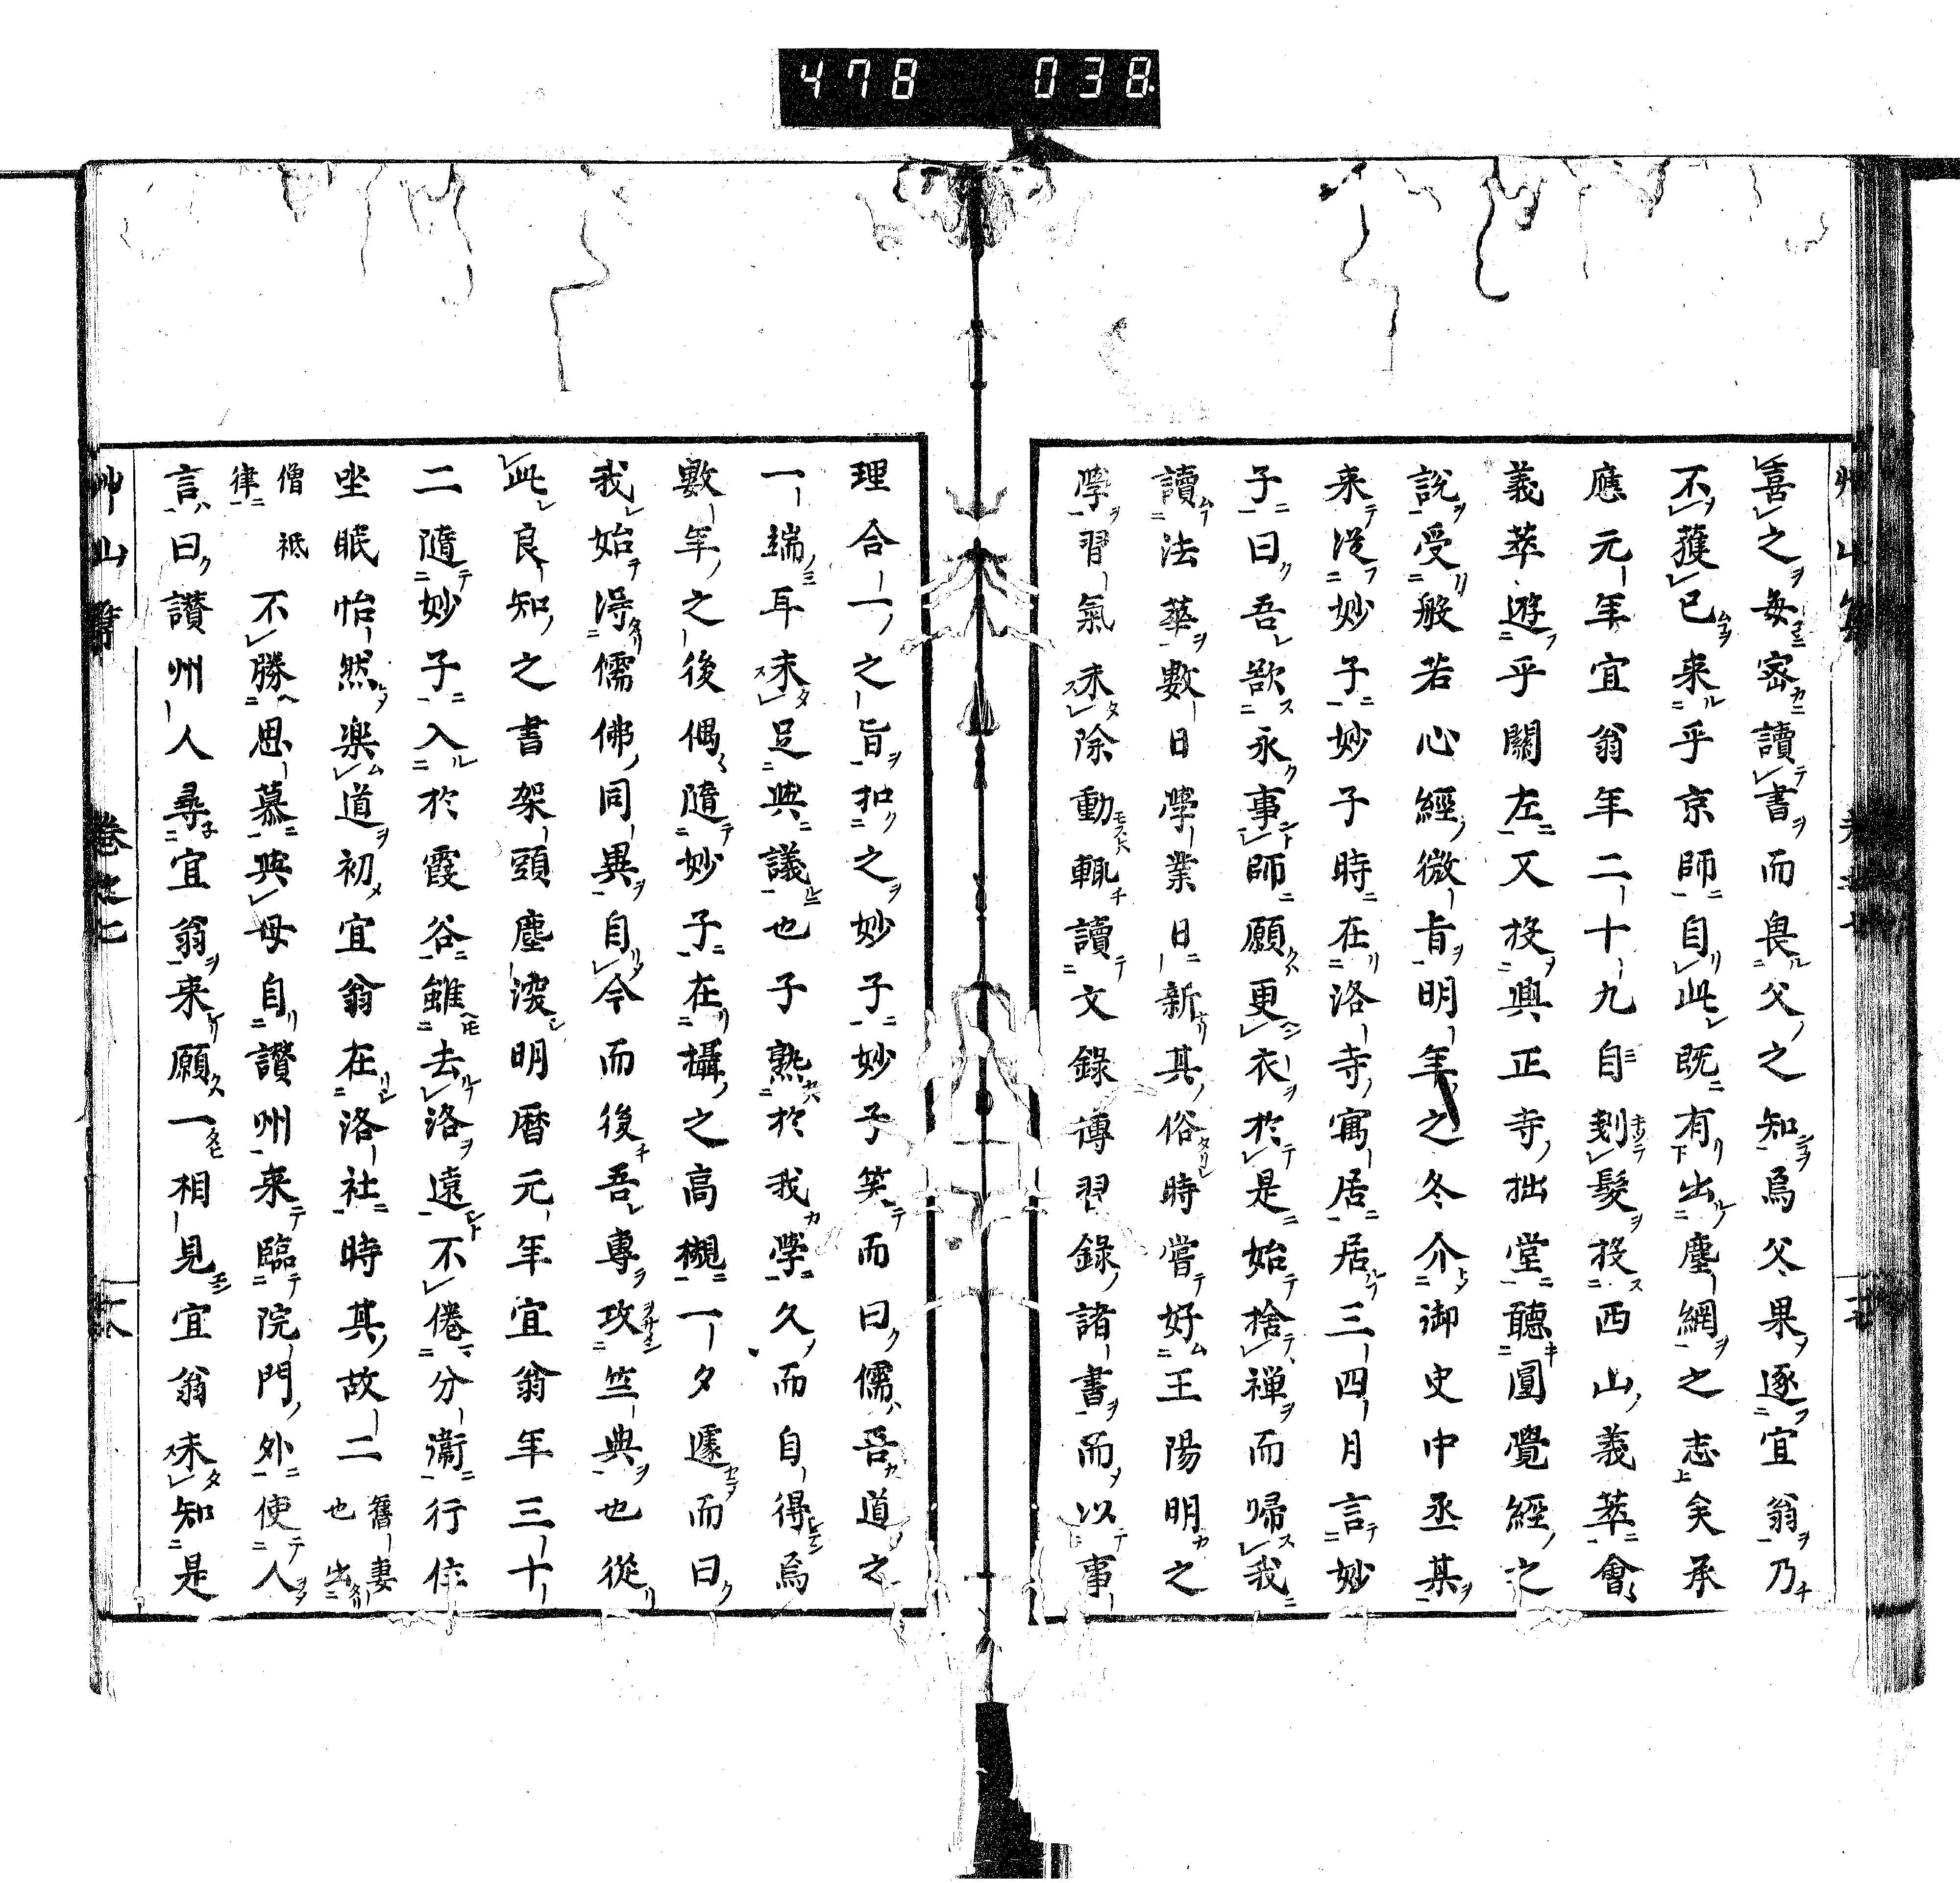 478 038
喜之每密讀書而畏父之知焉父果逐宜翁乃
不獲已来乎京師自此既有出塵網之志矣承
應元年宜翁年二十九自剃髮投西山義萃會
義萃遊乎關左又投興正寺拙堂聽圓覺經之
說受般若心經微旨明年之冬介御史中丞某
来從妙子妙子時在洛寺寓居居三四月言妙
子曰吾欲永事師願更衣於是始捨禪而歸我
讀法華數日學業日新其俗時嘗好王陽明之
學習氣未除動輒讀文錄傳習錄諸書而以事
理合一之旨扣之妙子妙子笑而曰儒吾道之
一端耳未足與議也子熟於我學久而自得焉
數年之後偶隨妙子在攝之高槻一夕遽而曰
我始得儒佛同異自今而後吾專攻竺典也從
此良知之書架頭塵涴明曆元年宜翁年三十
二隨妙子入於霞谷雖去洛遠不倦分衞行住
坐眠怡然楽道初宜翁在洛社時其故二舊妻也出
僧祇律不勝思慕與母自讃州来臨院門外使人
言曰讃州人尋宜翁来願一相見宜翁未知是
艸山集 卷之七 十八